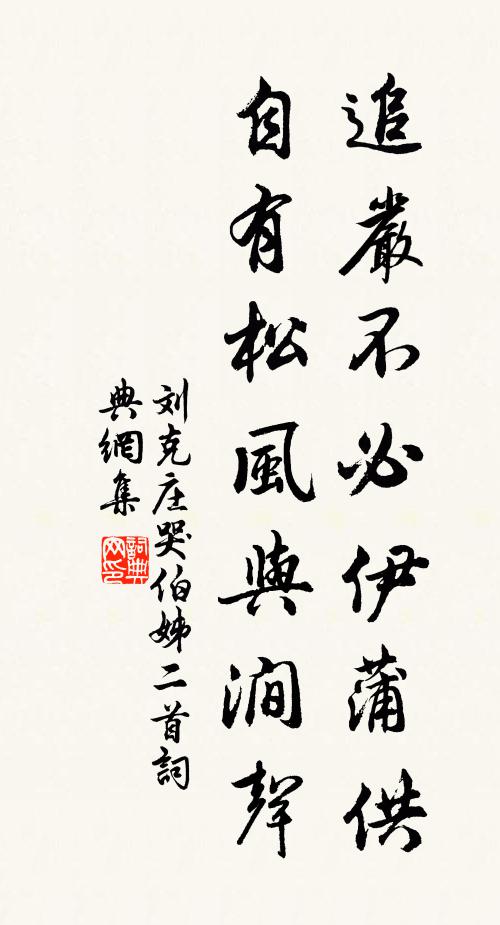 追嚴不必伊蒲供
自有松風與澗聲
刘克庄哭伯姊二首詞
典網集
詞典網印